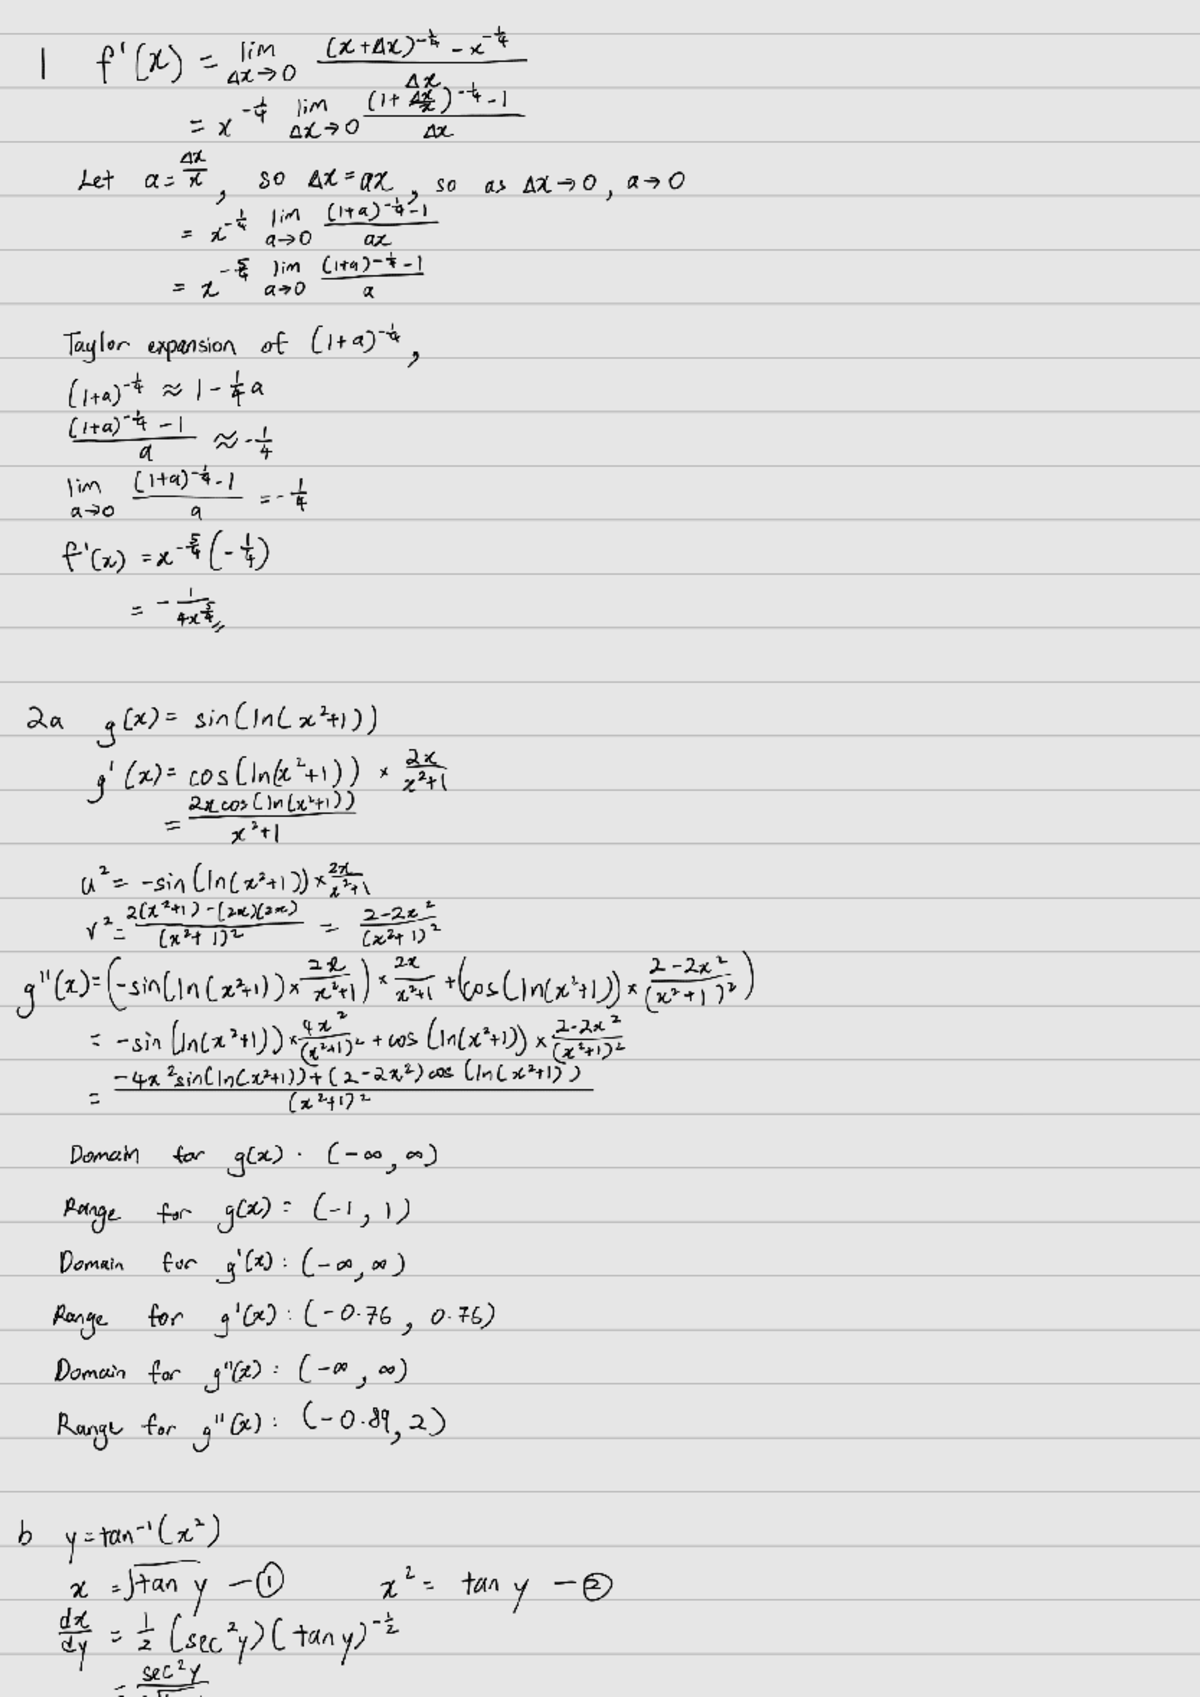 1 f'(x) = lim Δx→0 ((x+Δx)^(-1/4) - x^(-1/4))/Δx
= x^(-1/4) lim Δx→0 ((1+Δx/x)^(-1/4) - 1)/Δx
Let a = Δx/x, so Δx = ax, so as Δx→0, a→0
= x^(-1/4) lim a→0 ((1+a)^(-1/4) - 1)/ax
= x^(-5/4) lim a→0 ((1+a)^(-1/4) - 1)/a
Taylor expansion of (1+a)^(-1/4),
(1+a)^(-1/4) ≈ 1 - 1/4 a
((1+a)^(-1/4) - 1)/a ≈ -1/4
lim a→0 ((1+a)^(-1/4) - 1)/a = -1/4
f'(x) = x^(-5/4) (-1/4)
= -1/(4x^(5/4))
2a g(x) = sin(ln(x²+1))
g'(x) = cos(ln(x²+1)) × 2x/(x²+1)
= 2x cos(ln(x²+1))/(x²+1)
u² = -sin(ln(x²+1)) × 2x/(x²+1)
v² = (2(x²+1) - (2x)(2x))/(x²+1)² = (2-2x²)/(x²+1)²
g''(x) = (-sin(ln(x²+1)) × 2x/(x²+1)) × 2x/(x²+1) + (cos(ln(x²+1)) × (2-2x²)/(x²+1)²)
= -sin(ln(x²+1)) × 4x²/(x²+1)² + cos(ln(x²+1)) × (2-2x²)/(x²+1)²
= (-4x² sin(ln(x²+1)) + (2-2x²) cos(ln(x²+1)))/(x²+1)²
Domain for g(x) . (-∞, ∞)
Range for g(x) = (-1, 1)
Domain for g'(x) : (-∞, ∞)
Range for g'(x) : (-0.76, 0.76)
Domain for g''(x) : (-∞, ∞)
Range for g''(x) : (-0.89, 2)
b y = tan⁻¹(x²)
x = √(tan y) - ① x² = tan y - ②
dx/dy = 1/2 (sec²y)(tan y)^(-1/2)
= sec²y